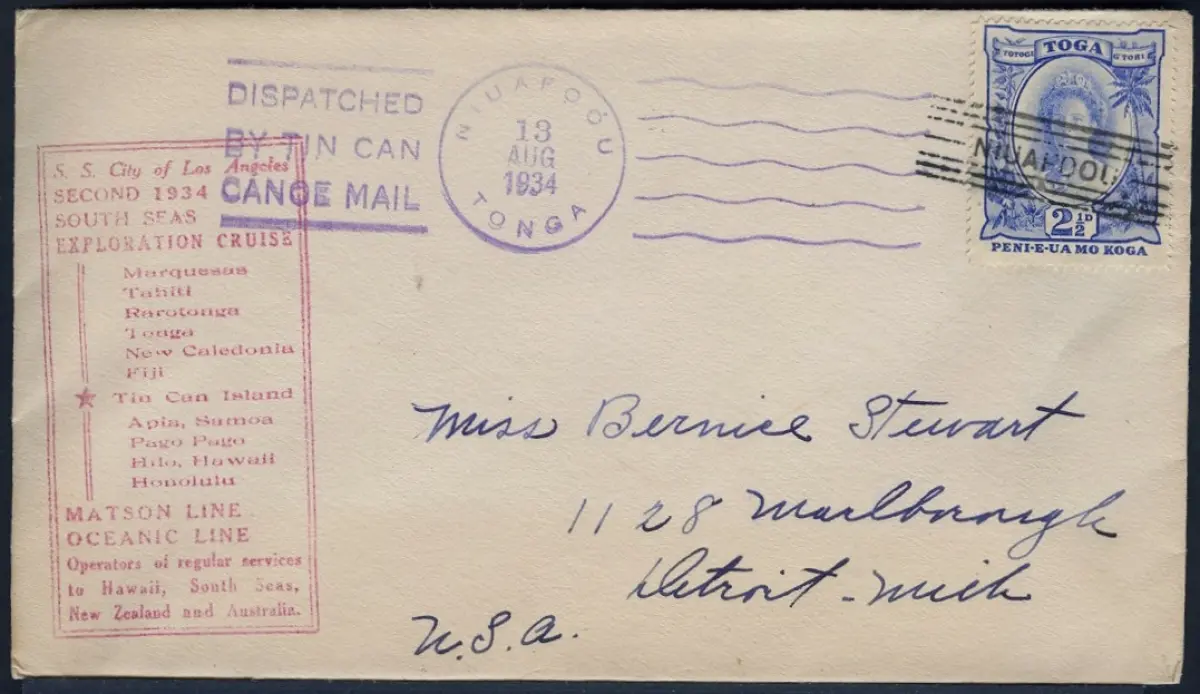 DISPATCHED
BY TIN CAN
CANOE MAIL
NIUAFOÓU
13
AUG
1934
TONGA
TOTOGI
TOGA
G TOHI
NIUAFOOU
2½D
PENI-E-UA MO KOGA
S. S. City of Los Angeles
SECOND 1934
SOUTH SEAS
EXPLORATION CRUISE
Marquesas
Tahiti
Rarotonga
Tonga
New Caledonia
Fiji
Tin Can Island
Apia, Samoa
Pago Pago
Hilo, Hawaii
Honolulu
MATSON LINE
OCEANIC LINE
Operators of regular services
to Hawaii, South Seas,
New Zealand and Australia.
Miss Bernice Stewart
1128 Marlborough
Detroit - Mich
U.S.A.